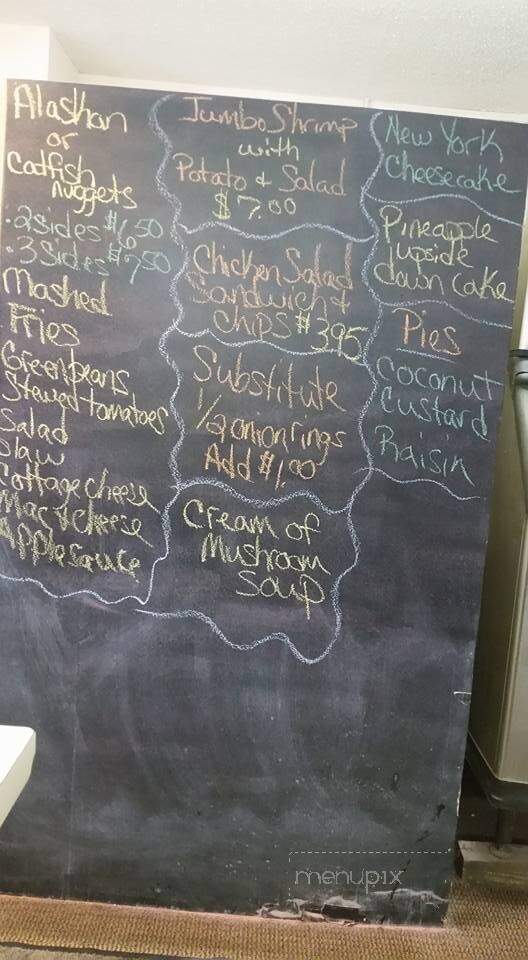 Alashan
or
Codfish
nuggets
• 2 Sides $6.50
• 3 Sides $7.50
Mashed
Fries
Greenbeans
Stewed tomatoes
Salad
Slaw
Cottage cheese
Mac & cheese
Applesauce
Jumbo Shrimp
with
Potato & Salad
$7.00
Chicken Salad
Sandwich &
Chips $3.95
Substitute
1/2 onion rings
Add $1.00
Cream of
Mushroom
Soup
New York
Cheesecake
Pineapple
upside
down cake
Pies
Coconut
Custard
Raisin
menupix